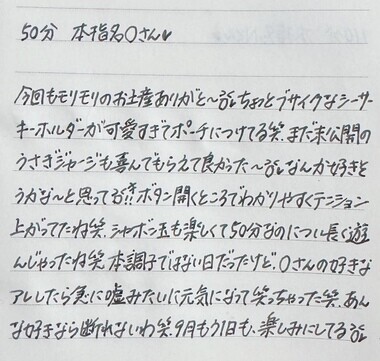 50分 本指名○さん♥
今回もモリモリのお土産ありがと〜ちょっとブサイクなシーサー
キーホルダーが可愛すぎてポーチにつけてる笑。まだ未公開の
うさぎジャージも喜んでもらえて良かった〜なんか好きそ
うかな〜と思ってる!!ボタン開くところでわかりやすくテンション
上がってたね笑。シャボン玉も楽しくて50分なのについ長く遊
んじゃったね笑。本調子ではない日だったけど、○さんの好きな
アレしたら急に嘘みたいに元気になって笑っちゃった笑。あん
な好きなら断れないわ笑。9月もう1日も、楽しみにしてる